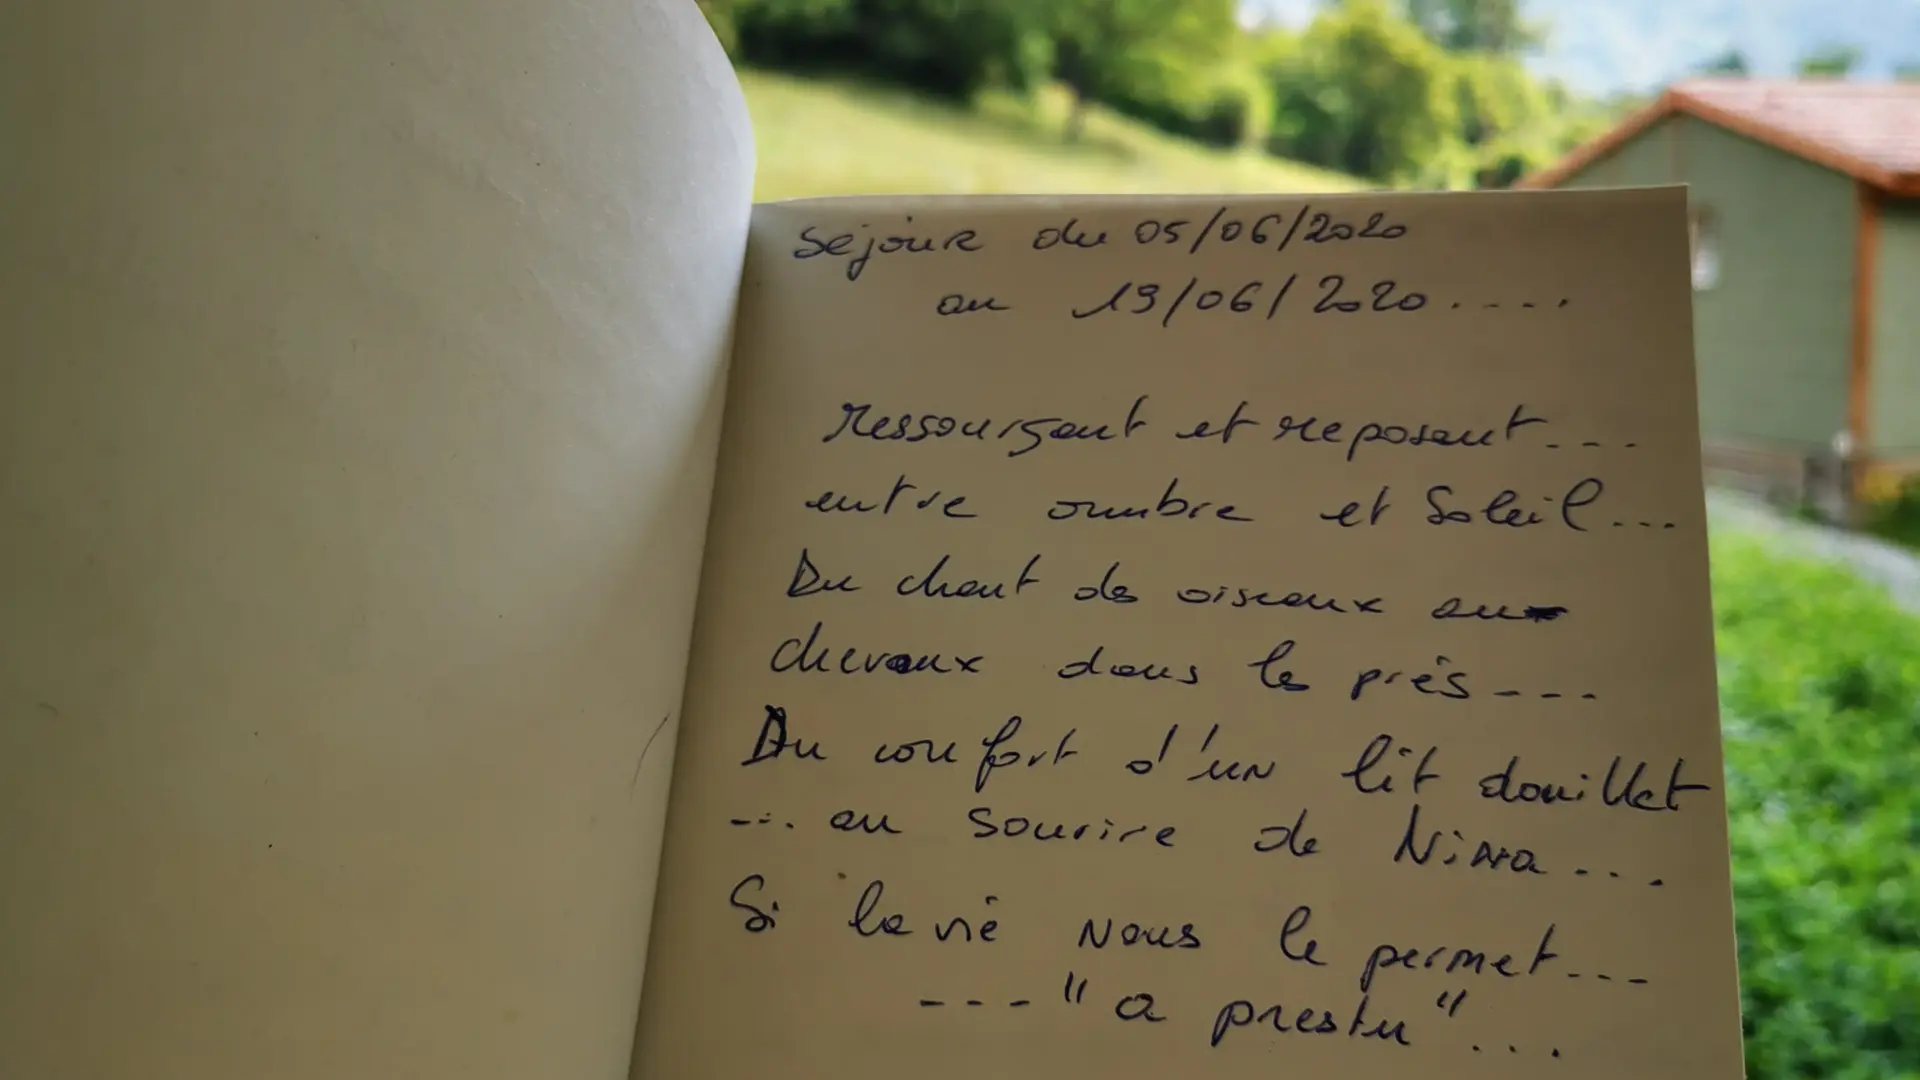 Séjour du 05/06/2020
au 13/06/2020....
Ressourçant et reposant....
entre ombre et Soleil...
Du chant des oiseaux au
chevaux dans les prés---
Du confort d'un lit douillet
... au sourire de Nina...
Si la vie Nous le permet...
---"a prestu"...